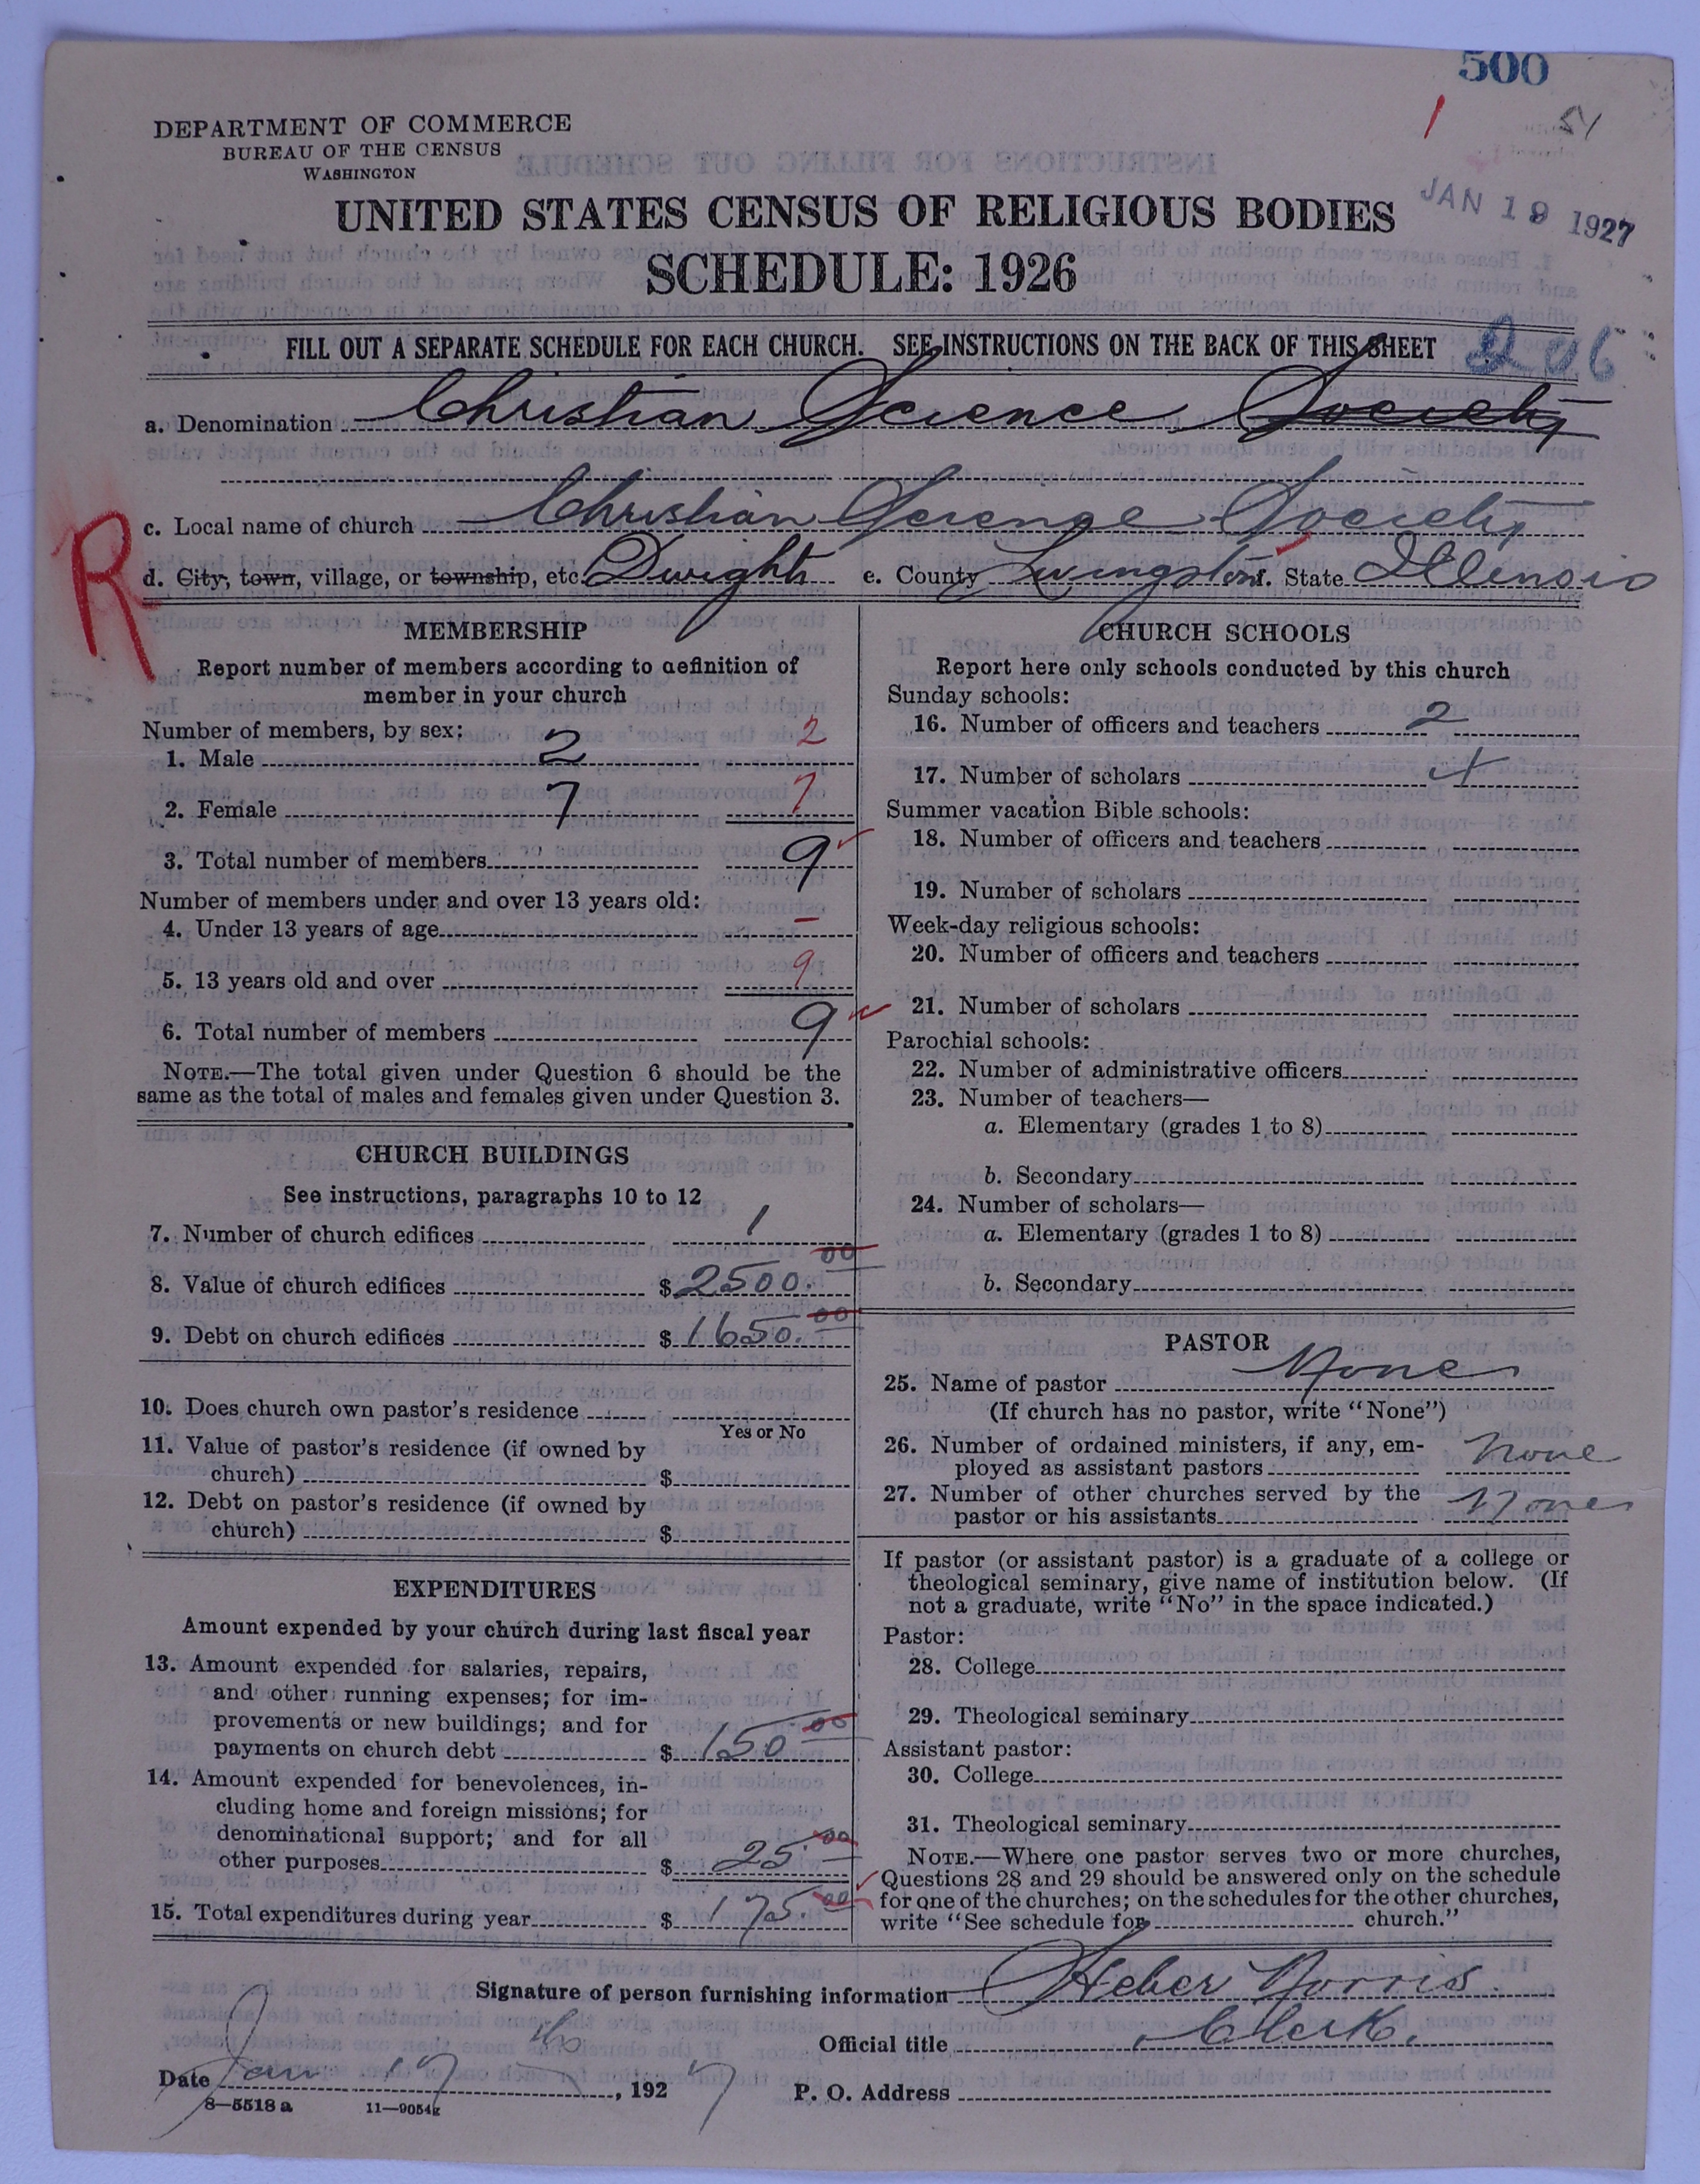 500
1 51
DEPARTMENT OF COMMERCE
BUREAU OF THE CENSUS
WASHINGTON
JAN 19 1927
UNITED STATES CENSUS OF RELIGIOUS BODIES
SCHEDULE: 1926
FILL OUT A SEPARATE SCHEDULE FOR EACH CHURCH. SEE INSTRUCTIONS ON THE BACK OF THIS SHEET
206
a. Denomination Christian Science Society
c. Local name of church Christian Science Society
R
d. City, town, village, or township, etc. Dwight e. County Livingston f. State Illinois
MEMBERSHIP
Report number of members according to definition of
member in your church
Number of members, by sex:
1. Male 2 2
2. Female 7 7
3. Total number of members 9
Number of members under and over 13 years old:
4. Under 13 years of age –
5. 13 years old and over 9
6. Total number of members 9
NOTE.—The total given under Question 6 should be the
same as the total of males and females given under Question 3.
CHURCH BUILDINGS
See instructions, paragraphs 10 to 12
7. Number of church edifices 1
8. Value of church edifices $ 2500.00
9. Debt on church edifices $ 1650.00
10. Does church own pastor's residence
Yes or No
11. Value of pastor's residence (if owned by
church) $
12. Debt on pastor's residence (if owned by
church) $
EXPENDITURES
Amount expended by your church during last fiscal year
13. Amount expended for salaries, repairs,
and other running expenses; for im-
provements or new buildings; and for
payments on church debt $ 150.00
14. Amount expended for benevolences, in-
cluding home and foreign missions; for
denominational support; and for all
other purposes $ 25.00
15. Total expenditures during year $ 175.00
CHURCH SCHOOLS
Report here only schools conducted by this church
Sunday schools:
16. Number of officers and teachers 2
17. Number of scholars 4
Summer vacation Bible schools:
18. Number of officers and teachers
19. Number of scholars
Week-day religious schools:
20. Number of officers and teachers
21. Number of scholars
Parochial schools:
22. Number of administrative officers
23. Number of teachers—
a. Elementary (grades 1 to 8)
b. Secondary
24. Number of scholars—
a. Elementary (grades 1 to 8)
b. Secondary
PASTOR
25. Name of pastor None
(If church has no pastor, write "None")
26. Number of ordained ministers, if any, em-
ployed as assistant pastors None
27. Number of other churches served by the
pastor or his assistants None
If pastor (or assistant pastor) is a graduate of a college or
theological seminary, give name of institution below. (If
not a graduate, write "No" in the space indicated.)
Pastor:
28. College
29. Theological seminary
Assistant pastor:
30. College
31. Theological seminary
NOTE.—Where one pastor serves two or more churches,
Questions 28 and 29 should be answered only on the schedule
for one of the churches; on the schedules for the other churches,
write "See schedule for church."
Signature of person furnishing information Heber Norris
Official title Clerk.
Date Jan 17, 1927 P. O. Address
8—5518 a 11—9054